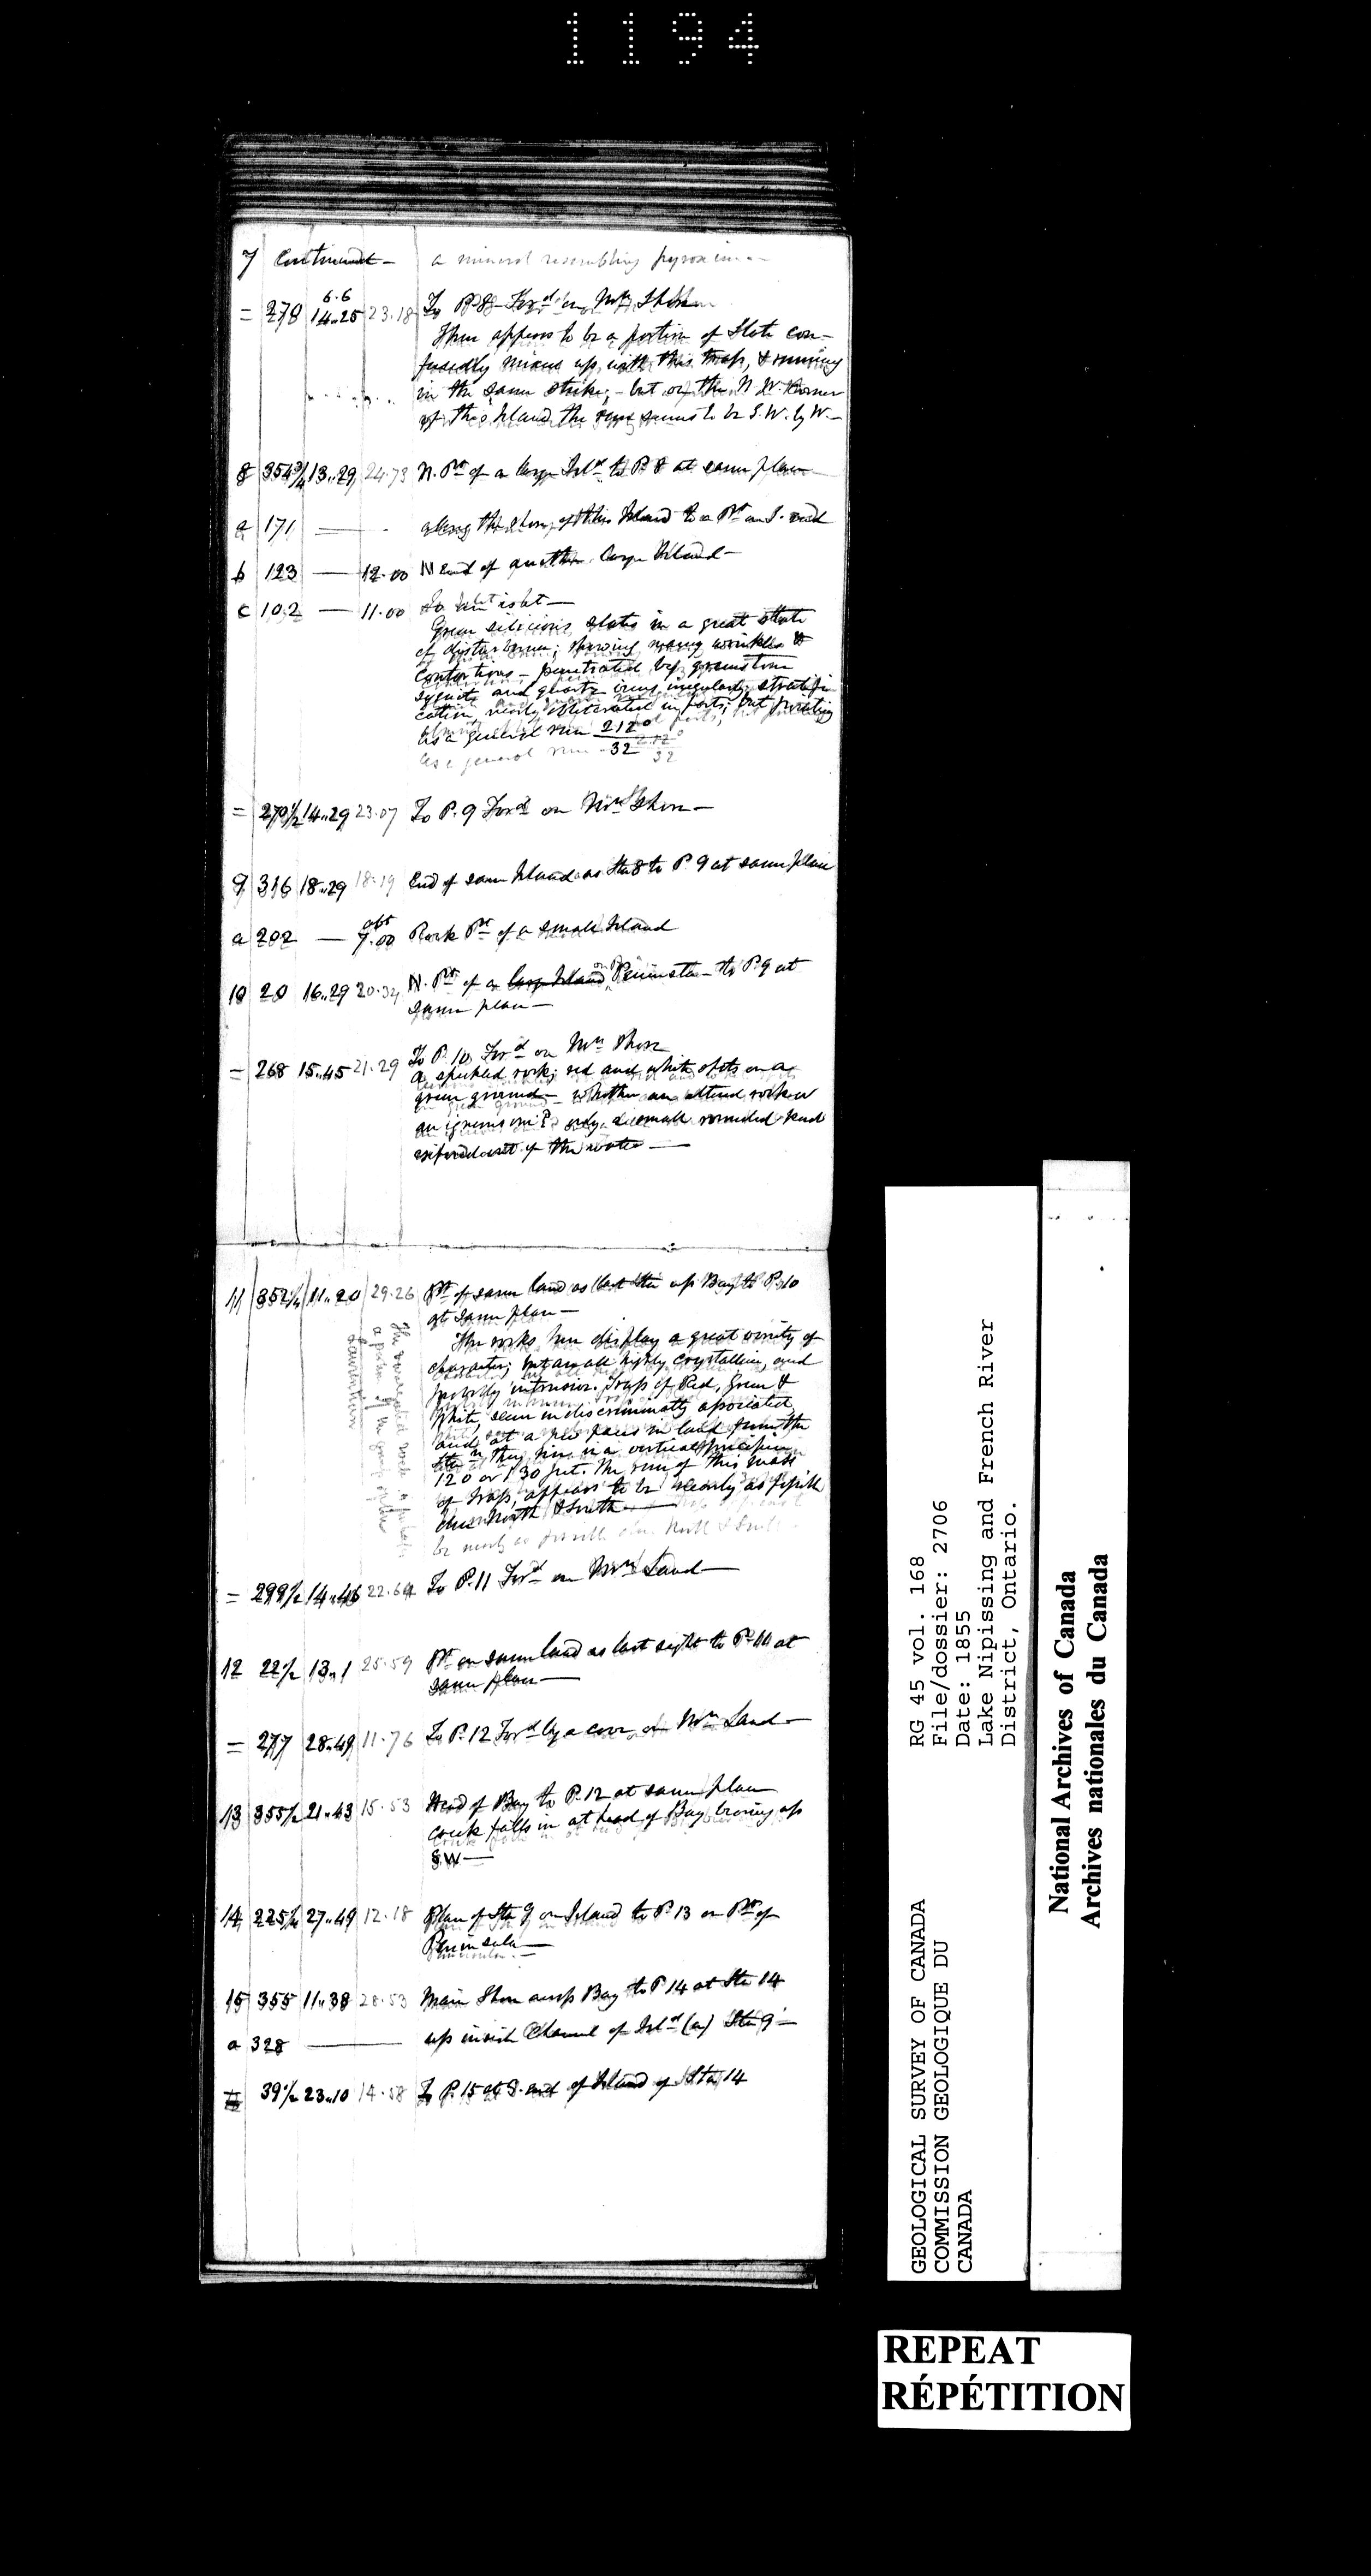 1194
7 Continued - a mineral resembling pyroxene -
= 278 6.6 14..25 23.18 To P. 8 - Ford on Mn Shore
There appears to be a portion of Slate con-
fusedly mixed up with this trap, & running
in the same strike; - but on the N.W. Corner
of this Island the run seems to be S.W. by W. -
8 354 3/4 13..29 24.73 N. Pt of a large Isld to P. 8 at same place
a 171 — along the shore of this Island to a Pt on S. end
b 123 — 12.00 N end of another large Island -
c 102 — 11.00 To
Green silicious slates in a great state
of disturbance; showing many wrinkles &
contortions - penetrated by greenstone
syenite and quartz veins irregularly; stratifi
cation, nearly obliterated in parts; but
as a general run 212°
as a general run 32 212° 32
= 270 1/2 14..29 23.07 To P. 9 Ford on Mn Shore -
9 316 18..29 18.19 End of same Island as Sta 8 to P 9 at same place
a 202 — abt 7.00 Rock Pt of a small Island
10 20 16..29 20.34 N. Pt of a large Island Peninsula - to P. 9 at
same place -
= 268 15..45 21.29 To P. 10 Ford on Mn Shore
a speckled rock; red and white spots on a
green ground - whether an altered rock or
an igneous one? only a small rounded
out of the water —
11 352 1/4 11..20 29.26 Pt of same land as last Sta up Bay to P. 10
at same place -
The rocks here display a great variety of
character; but are all highly crystalline, and
probably intrusive. Traps of Red, Green &
White, seem indiscriminately associated,
and at a few paces in land from the
Sta n they rise in a vertical precipice
120 or 130 feet. The run of this mass
of trap, appears to be nearly as possible
due North & South —
be nearly as possible due North & South -
The variegated rock is
a portion of the group of the
Laurentian
= 299 1/2 14..46 22.64 To P. 11 Ford on Mn Land -
12 22 1/2 13..1 25.59 Pt on same land as last sight to P. 11 at
same place -
= 277 28..49 11.76 To P. 12 Ford by a cove, on Mn Land -
13 355 1/2 21..43 15.53 Head of Bay to P. 12 at same place
creek falls in at head of Bay bearing up
S.W —
14 225 1/2 27..49 12.18 Place of Sta 9 on Island to P. 13 on Pt of
Peninsula -
15 355 11..38 28.53 Main Shore across Bay to P 14 at Sta 14
a 328 — up inside Channel of Isld (a) Sta 9 -
39 1/2 23..10 14.58 To P. 15 at S. end of Island of Sta 14
GEOLOGICAL SURVEY OF CANADA
COMMISSION GEOLOGIQUE DU
CANADA
RG 45 vol. 168
File/dossier: 2706
Date: 1855
Lake Nipissing and French River
District, Ontario.
National Archives of Canada
Archives nationales du Canada
REPEAT
RÉPÉTITION